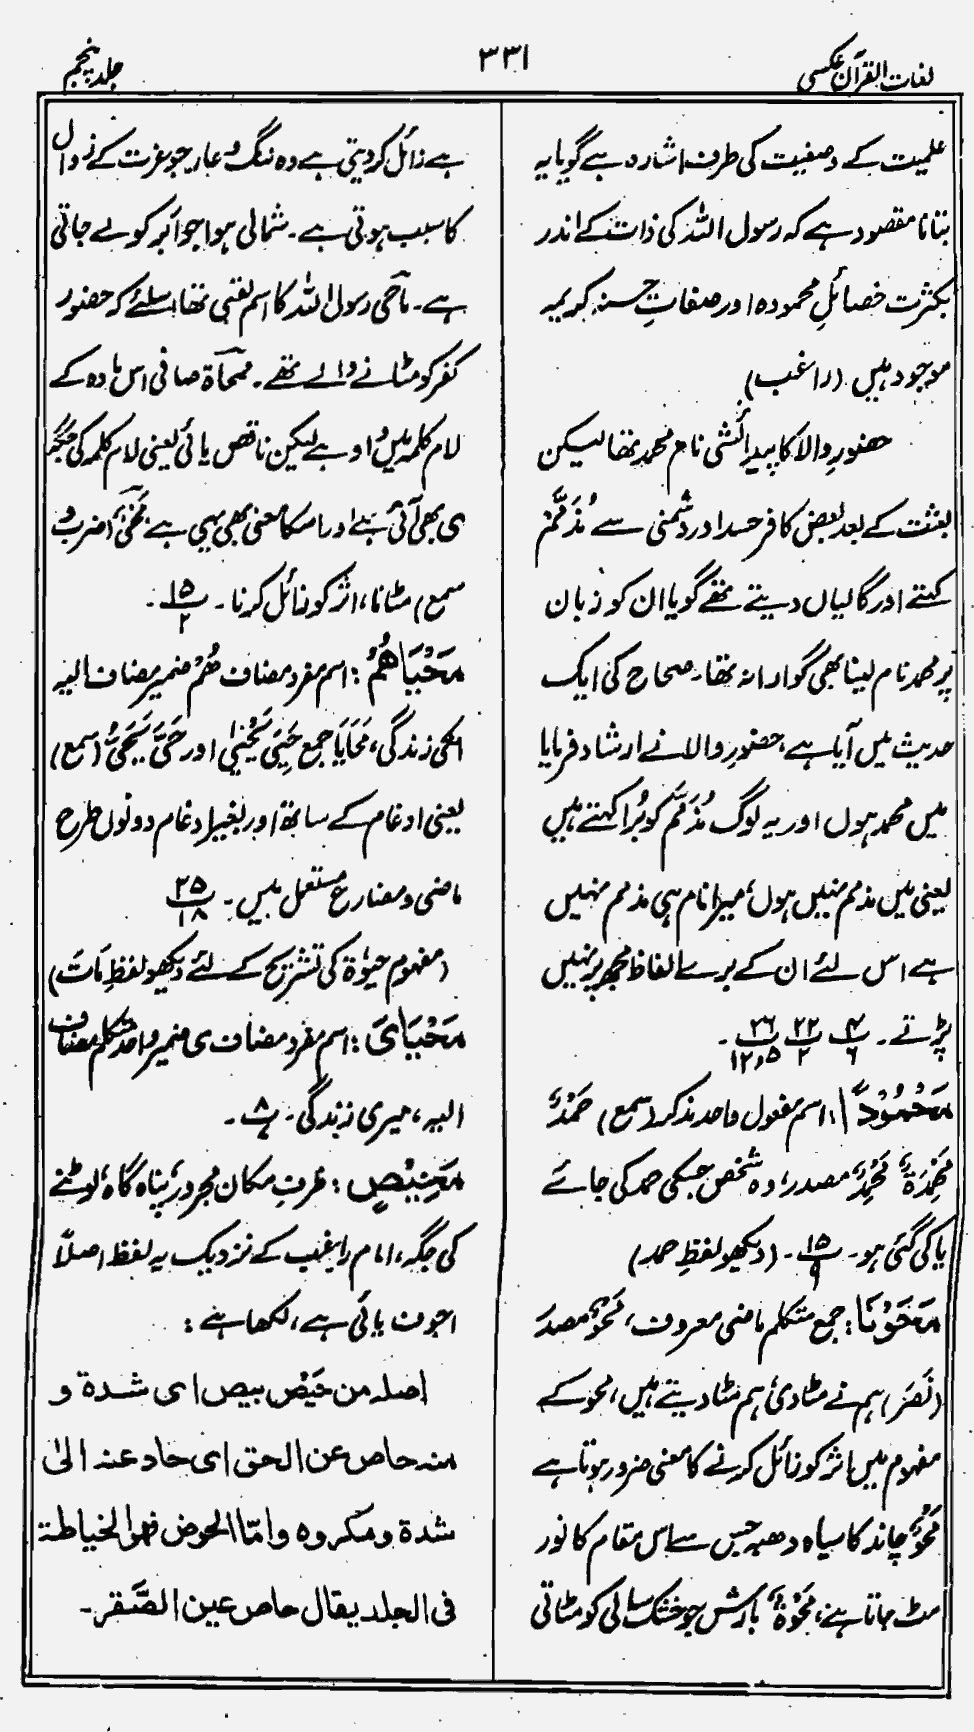 لغات القرآن عکسی
۳۳۱
جلد پنجم
علمیت کے وصفیت کی طرف اشارہ ہے گویا یہ
بتانا مقصود ہے کہ رسول اللہ کی ذات کے اندر
بکثرت خصائلِ محمودہ اور صفاتِ حسنہ کریمہ
موجود ہیں (راغب)
حضورِ والا کا پیدائشی نام محمد تھا لیکن
بعثت کے بعد بعض کافر حسد اور دشمنی سے مُذَمَّمْ
کہتے اور گالیاں دیتے تھے گویا ان کو زبان
پر محمد نام لینا بھی گوارا نہ تھا۔ صحاح کی ایک
حدیث میں آیا ہے، حضورِ والا نے ارشاد فرمایا
میں محمد ہوں اور یہ لوگ مُذَمَّم کو بُرا کہتے ہیں
یعنی میں مذمم نہیں ہوں، میرا نام ہی مذمم نہیں
ہے اس لئے ان کے برے الفاظ مجھ پر نہیں
پڑتے۔ ۴/۶ ۲۲/۲ ۲۶/۱۲،۵۔
مَحْمُوْدًا: اسم مفعول واحد مذکر (سمع) حَمْدٌ،
مَحْمِدَةٌ مَحْمِدٌ، مصدر، وہ شخص جسکی حمد کی جائے
یا کی گئی ہو۔ ۱۵/۹۔ (دیکھو لفظِ حمد)
مَحَوْنَا: جمع متکلم ماضی معروف، مَحْوٌ مصدر
(نَصَرَ) ہم نے مٹا دی، ہم مٹا دیتے ہیں، محو کے
مفہوم میں اثر کو زائل کرنے کا معنی ضرور ہوتا ہے
مَحْوٌ، چاند کا سیاہ دھبہ جس سے اس مقام کا نور
مٹ جاتا ہے، مَحْوَةٌ بارش جو خشک سالی کو مٹاتی
ہے زائل کر دیتی ہے وہ ننگ و عار جو عزت کے زوال
کا سبب ہوتی ہے۔ شمالی ہوا جو ابر کو لے جاتی
ہے۔ مَاحِی رسول اللہ کا اسم لقبی تھا اسلئے کہ حضور
کفر کو مٹانے والے تھے۔ ممحاۃ صافی اس مادہ کے
لام کلمہ میں واو ہے لیکن ناقص یائی یعنی لام کلمہ کی جگہ
ی بھی آئی ہے اور اسکا معنی بھی یہی ہے، مَحْیٌ (ضرب و
سمع) مٹانا، اثر کو زائل کرنا۔ ۱۵/۲۔
مَحْيَاهُمْ: اسم مفرد مضاف هُمْ ضمیر مضاف الیہ
انکی زندگی، مَحَایَا جمع حَیِیَ یَحْییٰ اور حَیَّ یَحَیُّ (سمع)
یعنی ادغام کے ساتھ اور بغیر ادغام دونوں طرح
ماضی و مضارع مستعمل ہیں۔ ۲۵/۱۸
(مفہوم حیٰوۃ کی تشریح کے لئے دیکھو لفظِ مَاتَ)
مَحْيَايَ: اسم مفرد مضاف ی ضمیر واحد متکلم مضاف
الیہ، میری زندگی۔ ۸/۷۔
مَحِيْصٍ: ظرف مکان مجرور، پناہ گاہ، لوٹنے
کی جگہ، امام راغب کے نزدیک یہ لفظ اصلاً
اجوف یائی ہے، لکھا ہے:
اصلہ من حَیْص بیص ای شدۃ و
منہ حاص عن الحق ای حاد عنہ الیٰ
شدۃ و مکروہ و امّا الحوض فھو الخیاطۃ
فی الجلد یقال حاص عین الصَّقر۔